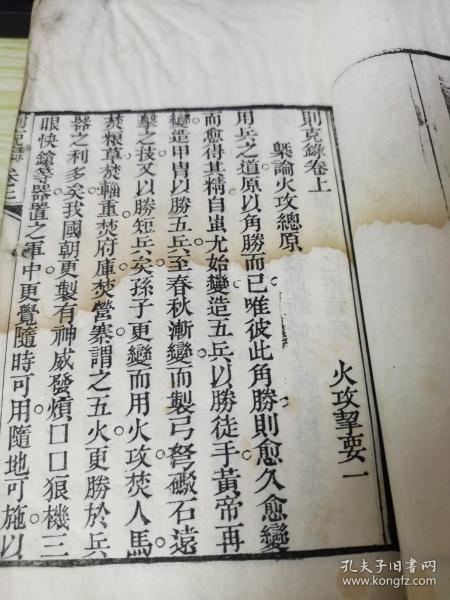 則克錄卷上
火攻挈要一
槩論火攻總原
用兵之道原以角勝而已唯彼此角勝則愈久愈變
而愈得其精自蚩尤始變造五兵以勝徒手黃帝再
變造甲冑以勝五兵至春秋漸變而製弓弩礮石遠
擊之技又以勝短兵矣孫子更變而用火攻焚人馬
焚糧草焚輜重焚府庫焚營寨謂之五火更勝於兵
器之利多矣我國朝更製有神威發熕口口狼機三
眼快鎗等器置之軍中更覺隨時可用隨地可施以
孔夫子旧书网
www.kongfz.com